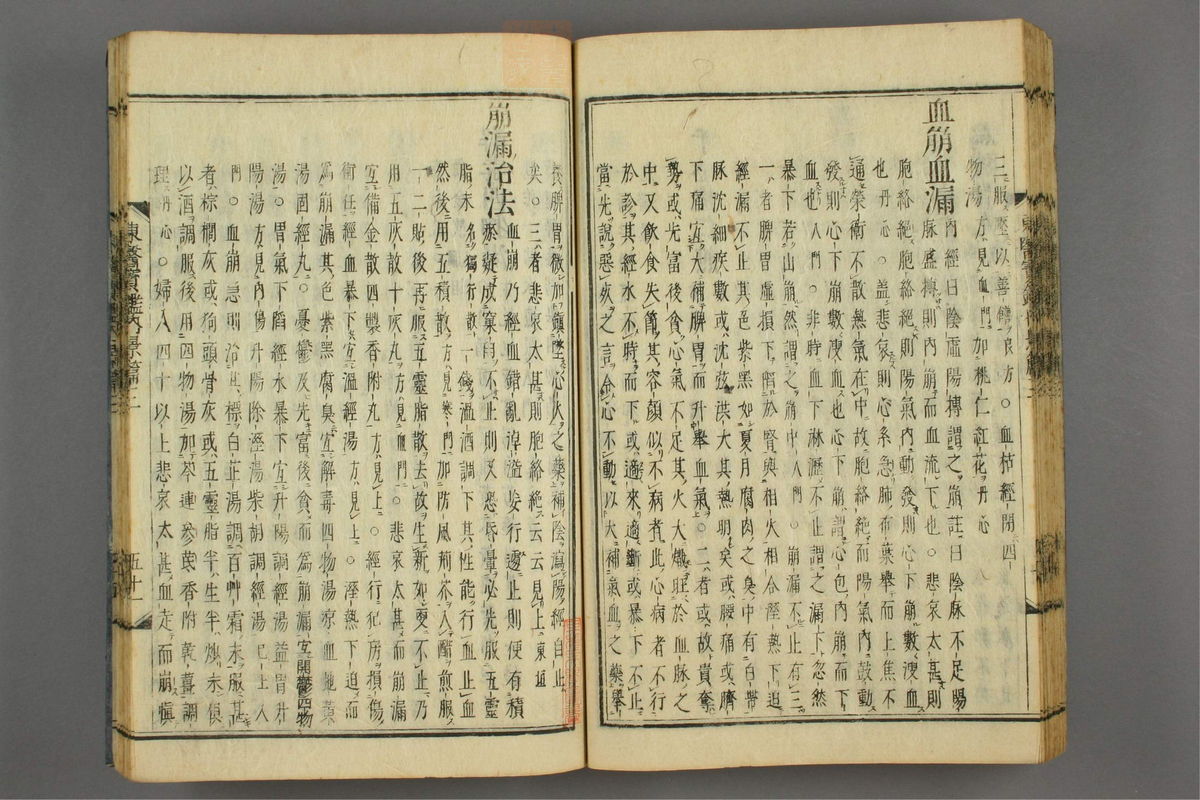 三服壓以善饍良方○血枯經閉四
物湯方見血門加桃仁紅花丹心
血崩血漏
內經曰陰虛陽搏謂之崩註曰陰脉不足陽
脉盛搏則內崩而血流下也○悲哀太甚則
胞絡絶胞絡絶則陽氣內動發則心下崩數溲血
也丹心○盖悲哀則心系急肺布葉擧而上焦不
通榮衛不散熱氣在中故胞絡絶而陽氣內鼓動
發則心下崩數溲血也心下崩謂心包內崩而下
血也入門○非時血下淋瀝不止謂之漏下忽然
暴下若山崩然謂之崩中入門○崩漏不止有三
一者脾胃虛損下䧟於腎與相火相合濕熱下迫
經漏不止其色紫黑如夏月腐肉之臭中有白帶
脉沈細疾數或沈弦洪大其熱明矣或腰痛或臍
下痛宜大補脾胃而升擧血氣○二者或故貴奪
勢或先富後貧心氣不足其火大熾旺於血脉之
中又飮食失節其容顔似不病者此心病者不行
於診其經水不時而下或適來適斷或暴下不止
當先說惡死之言令心不動以大補氣血之藥擧
養脾胃微加鎭墜心火之藥補陰瀉陽經自止
矣○三者悲哀太甚則胞絡絶云云見上東垣
崩漏治法
血崩乃經血錯亂淖溢妄行遽止則便有積
瘀凝成窠臼不止則又恐昏暈必先服五靈
脂末名獨行散一錢溫酒調下其性能行血止血
然後用五積散方見寒門加防風荊芥入醋煎服
一二貼後再服五靈脂散去故生新如更不止乃
用五灰散十灰丸方見血門○悲哀太甚而崩漏
宜備金散四製香附丸方見上○經行犯房損傷
衝任經血暴下宜溫經湯方見上○濕熱下迫而
爲崩漏其色紫黑腐臭宜解毒四物湯凉血地黃
湯固經丸○憂鬱及先富後貧而爲崩漏宜開鬱四物
湯○胃氣下䧟經水暴下宜升陽調經湯益胃升
陽湯方見內傷升陽除濕湯柴胡調經湯已上入
門○血崩急則治其標白芷湯調百艸霜末服甚
者棕櫚灰或狗頭骨灰或五靈脂半生半炒末傎
以酒調服後用四物湯加芩連參芪香附乾薑調
理丹心○婦人四十以上悲哀太甚血走而崩愼
東醫寶鑑內景篇三
五十一